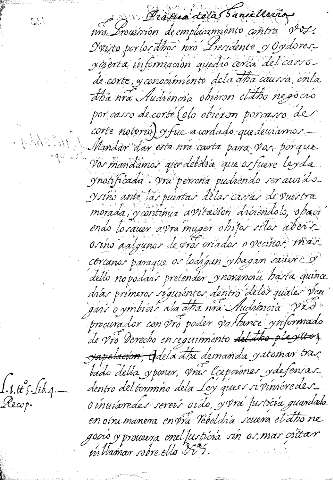 Practica de la Chancilleria
nra. Provision de emplazamiento contra vos.
Visto por los dhos nro Presidente y Oydores
y cierta informacion que dio cerca del casso
de corte, y conocimiento de la dha caussa, en la
dha nra Audiencia obieron el dho negocio
por casso de corte (o lo obieron por casso de
corte notorio) y fue acordado que deviamos
Mandar dar esta nra carta para vos, porque
vos mandamos que del dia que os fuere leyda
y notificada a vra persona pudiendo ser avido,
y sino ante las puertas de las casas de vuestra
morada, y continua avitacion diciendolo, o haci
endo lo saver a vra muger o hijos si los aveis
o sino a algunos de vros criados o vecinos, mas
cercanos para que os lo digan, y hagan saver, y
de ello no podais pretender ynorancia, hasta quince
dias primeros siguientes, dentro de los quales ven
gais o ymbieis a la dha nra Audiencia vro
procurador con vro poder vastante, y ynformado
de vro Derecho en seguimiento del dho pleyto
y apelacion, de la dha demanda, y a tomar tras
lado de ella y poner, vras Ecepciones, y defensas
dentro del termino de la Ley que si viniereedes
o inviaredes sereis oido, y vra justicia guardada
en otra manera en vra rebeldia se vera el dho ne
gocio y proveera en el justicia sin os mas citar
ni llamar sobre ello &c.
L. 1. tt. 5. lib. 4.
Recop.